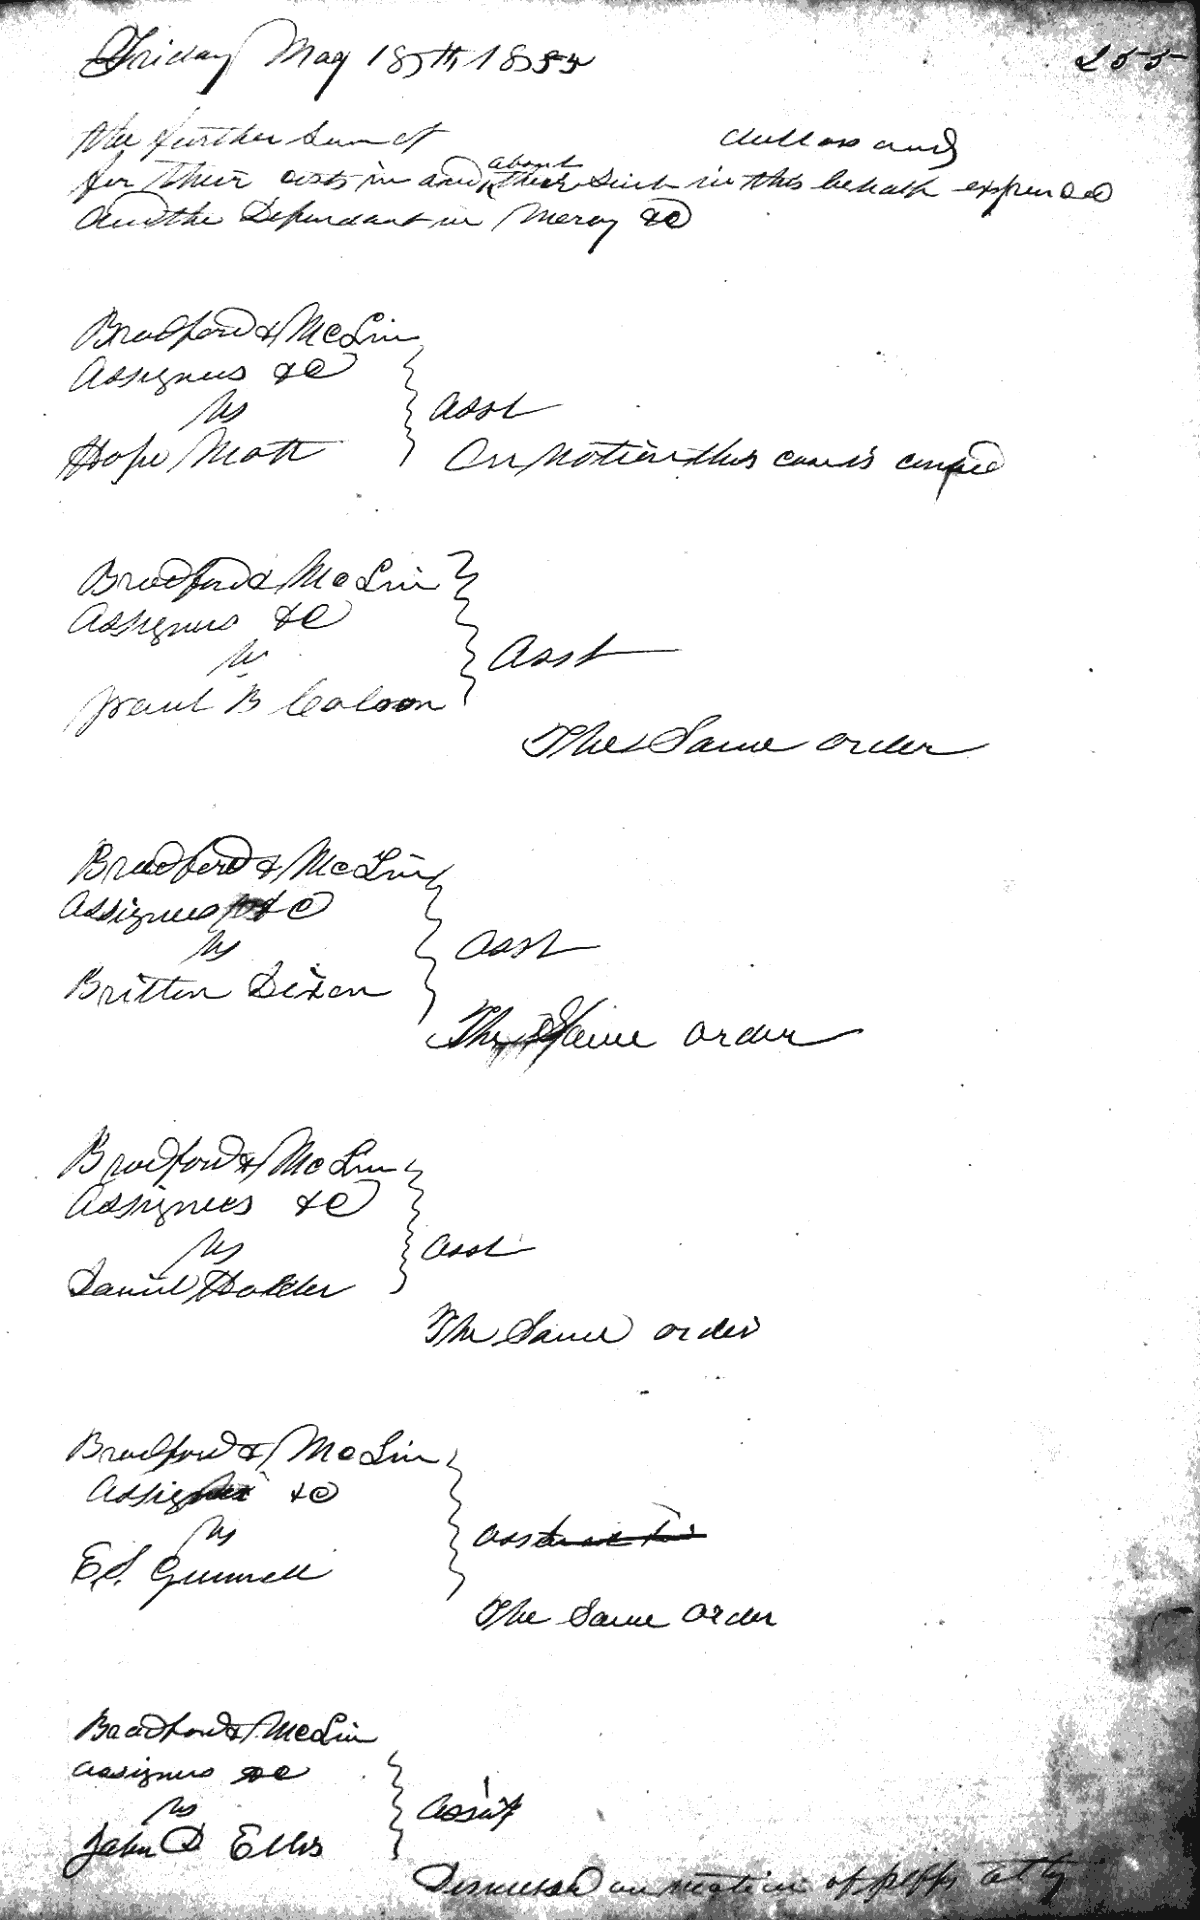 Friday May 18th 1855
255
the further sum of dollars and
for their costs in and about their Suit in this behalf expended
And the Defendant in Mercy &c
Bradford & McLin
Assignees &c
vs
Asst
Hope Mott
On Motion this cause is
Bradford & McLin
Assignees &c
vs
Asst
B Colson
The Same order
Bradford & McLin
Assignees &c
vs
Asst
Britten Dixon
The Same order
Bradford & McLin
Assignees &c
vs
Asst
Daniel Holder
The Same order
Bradford & McLin
Assignees &c
vs
Asst
E.S. Gunnell
The Same order
Bradford & McLin
Assignees &c
vs
Assist
John D Ellis
Dismissed on motion of plffs atty